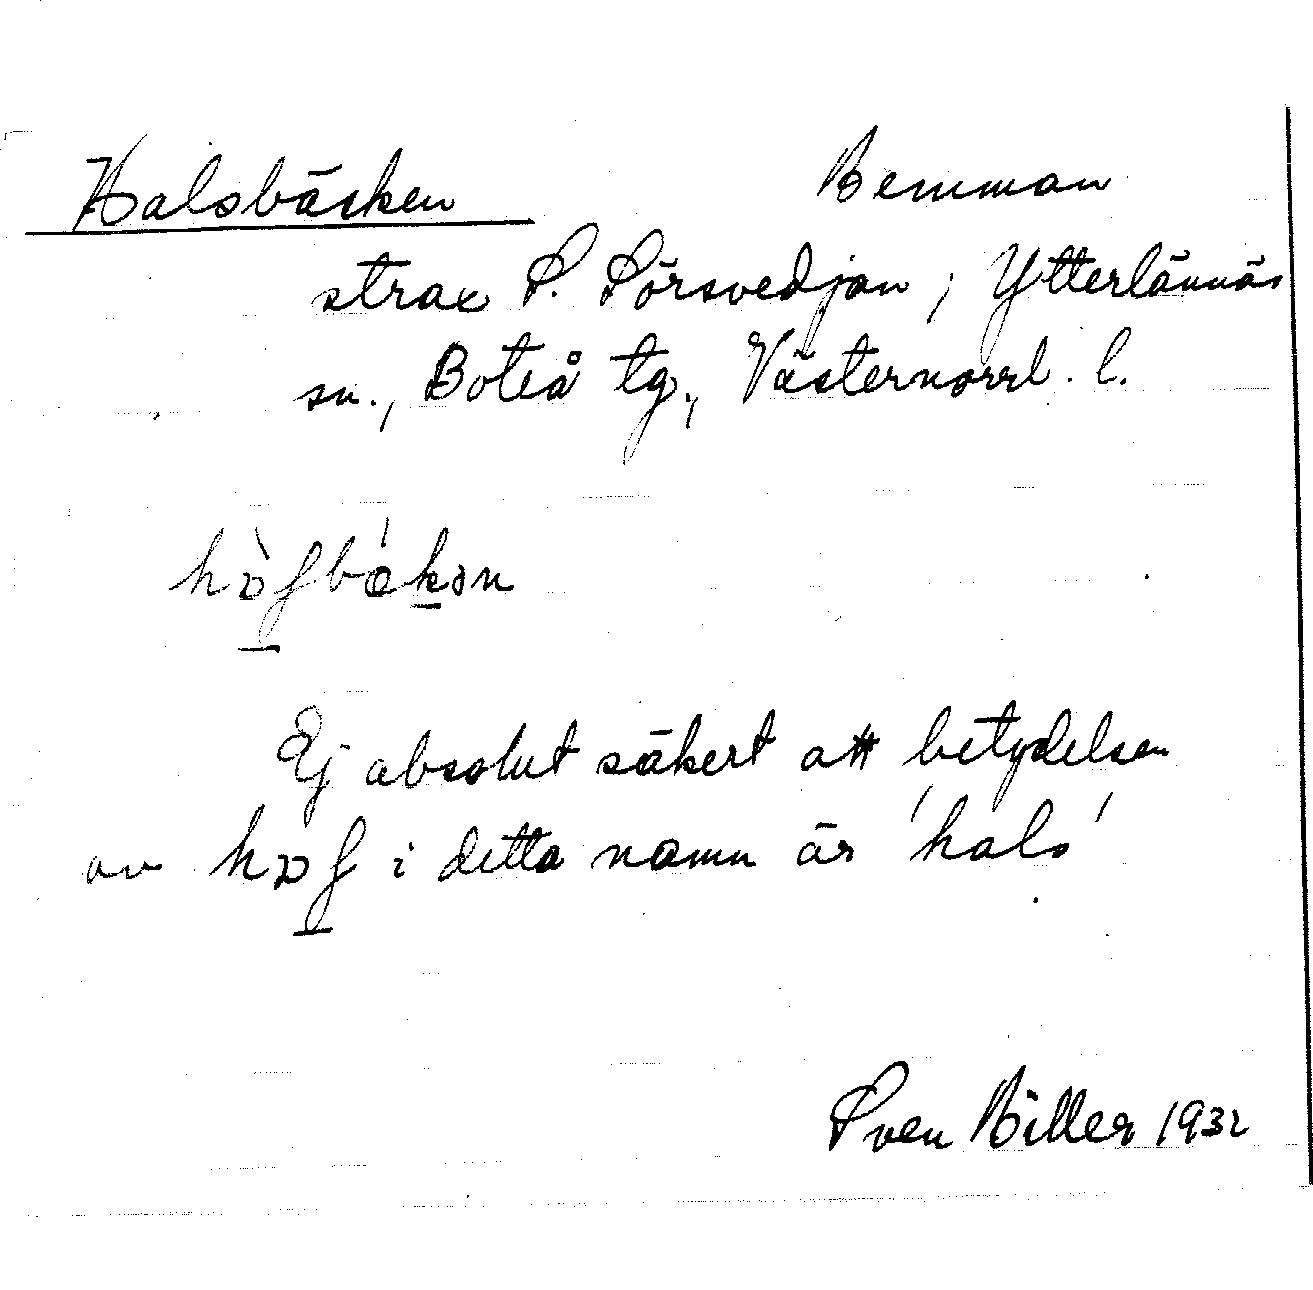 Halsbäcken Hemman
strax S. Sörsvedjan, Ytterlännäs
sn., Boteå tg., Västernorrl. l.
Ej absolut säkert att betydelsen
av i detta namn är 'hals'
Sven Hiller 1932